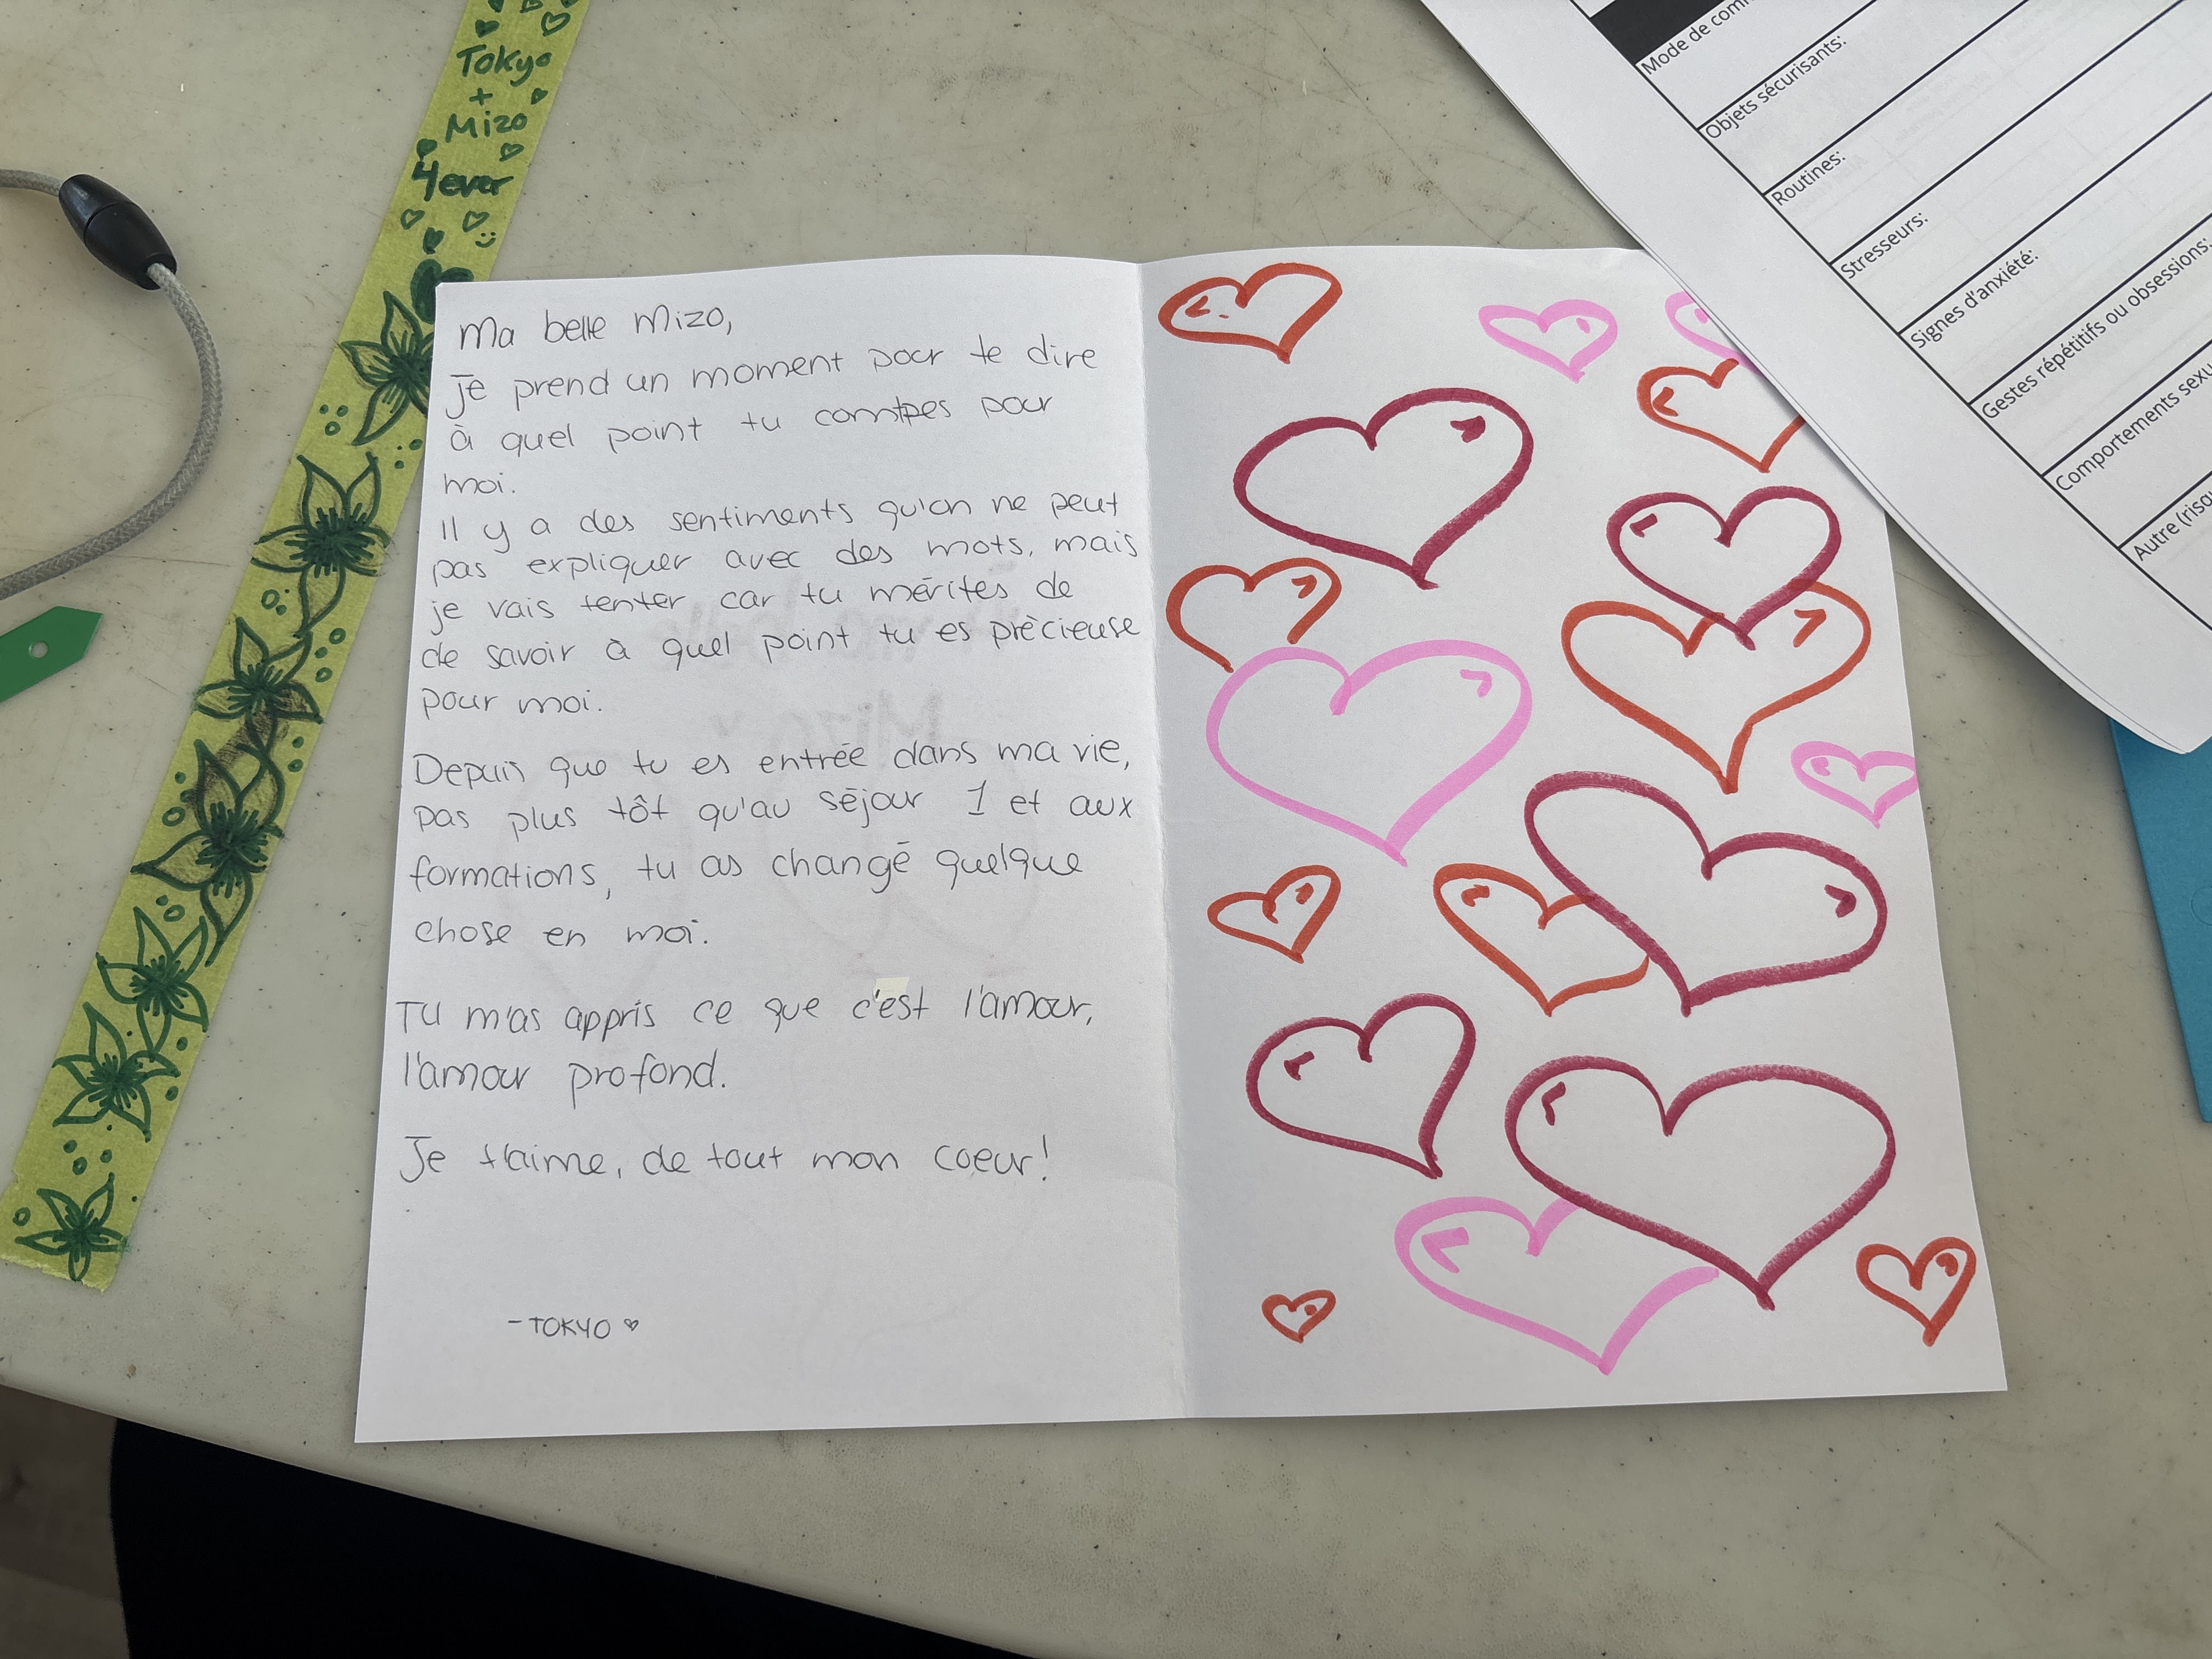 Tokyo
+
Mizo
4ever
Ma belle Mizo,
Je prend un moment pour te dire
à quel point tu comptes pour
moi.
Il y a des sentiments qu'on ne peut
pas expliquer avec des mots, mais
je vais tenter car tu mérites de
de savoir à quel point tu es précieuse
pour moi.
Depuis que tu es entrée dans ma vie,
pas plus tôt qu'au séjour 1 et aux
formations, tu as changé quelque
chose en moi.
Tu m'as appris ce que c'est l'amour,
l'amour profond.
Je t'aime, de tout mon coeur!
- TOKYO
Mode de
Objets sécurisants:
Routines:
Stresseurs:
Signes d'anxiété:
Gestes répétitifs ou obsessions:
Comportements
Autre